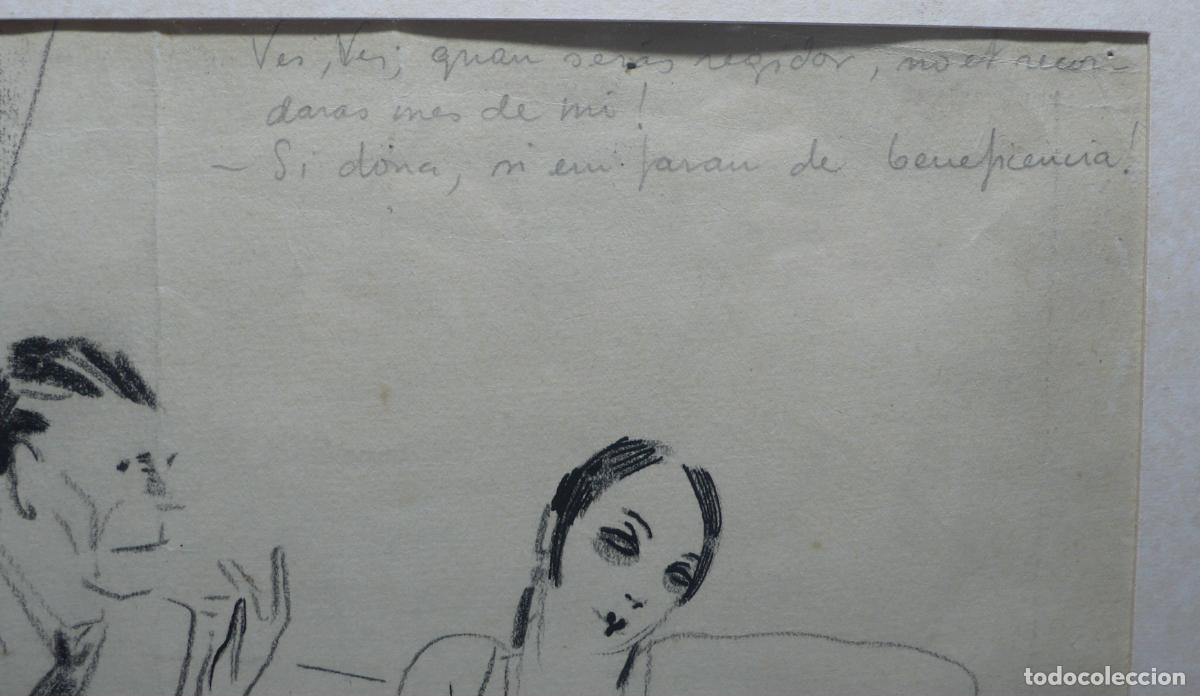 Ves, Ves, quan seràs regidor, no et recor-
daras mes de mi!
- Si dona, si em faran de beneficencia!
todocoleccion